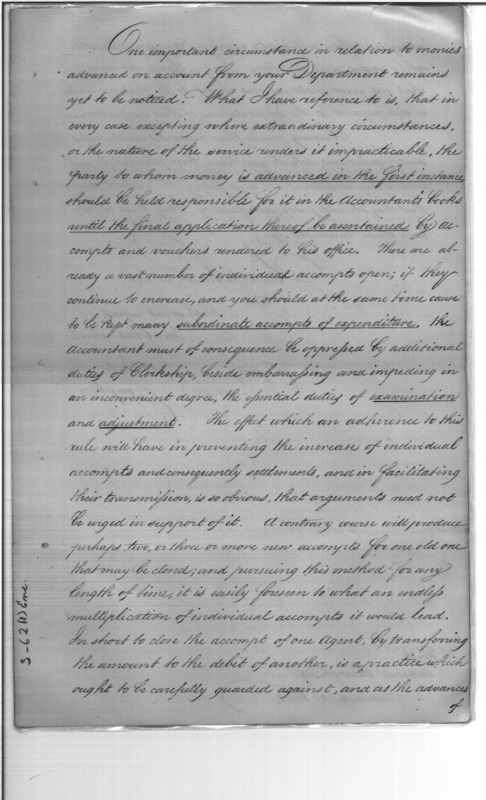 One important circumstance in relation to monies
advanced on account from your Department remains
yet to be noticed. What I have reference to is, that in
every case excepting where extraordinary circumstances,
or the nature of the service renders it impracticable, the
party to whom money is advanced in the first instance
should be held responsible for it in the Accountant's books
until the final application thereof be ascertained by ac-
compts and vouchers rendered to his office. There are al-
ready a vast number of individual accompts open; if they
continue to increase, and you should at the same time cause
to be kept many subordinate accompts of expenditure, the
Accountant must of consequence be oppressed by additional
duties of Clerkship, beside embarrassing and impeding in
an inconvenient degree, the essential duties of examination
and adjustment. The effect which an adherence to this
rule will have in preventing the increase of individual
accompts and consequently settlements, and in facilitating
their transmission, is so obvious, that arguments need not
be urged in support of it. A contrary course will produce
perhaps, two, or three or more new accompts for one old one
that may be closed; and pursuing this method for any
length of time, it is easily foreseen to what an endless
multiplication of individual accompts it would lead.
In short to close the accompt of one Agent, by transfering
the amount to the debit of another, is a practice which
ought to be carefully guarded against, and as the advances
of